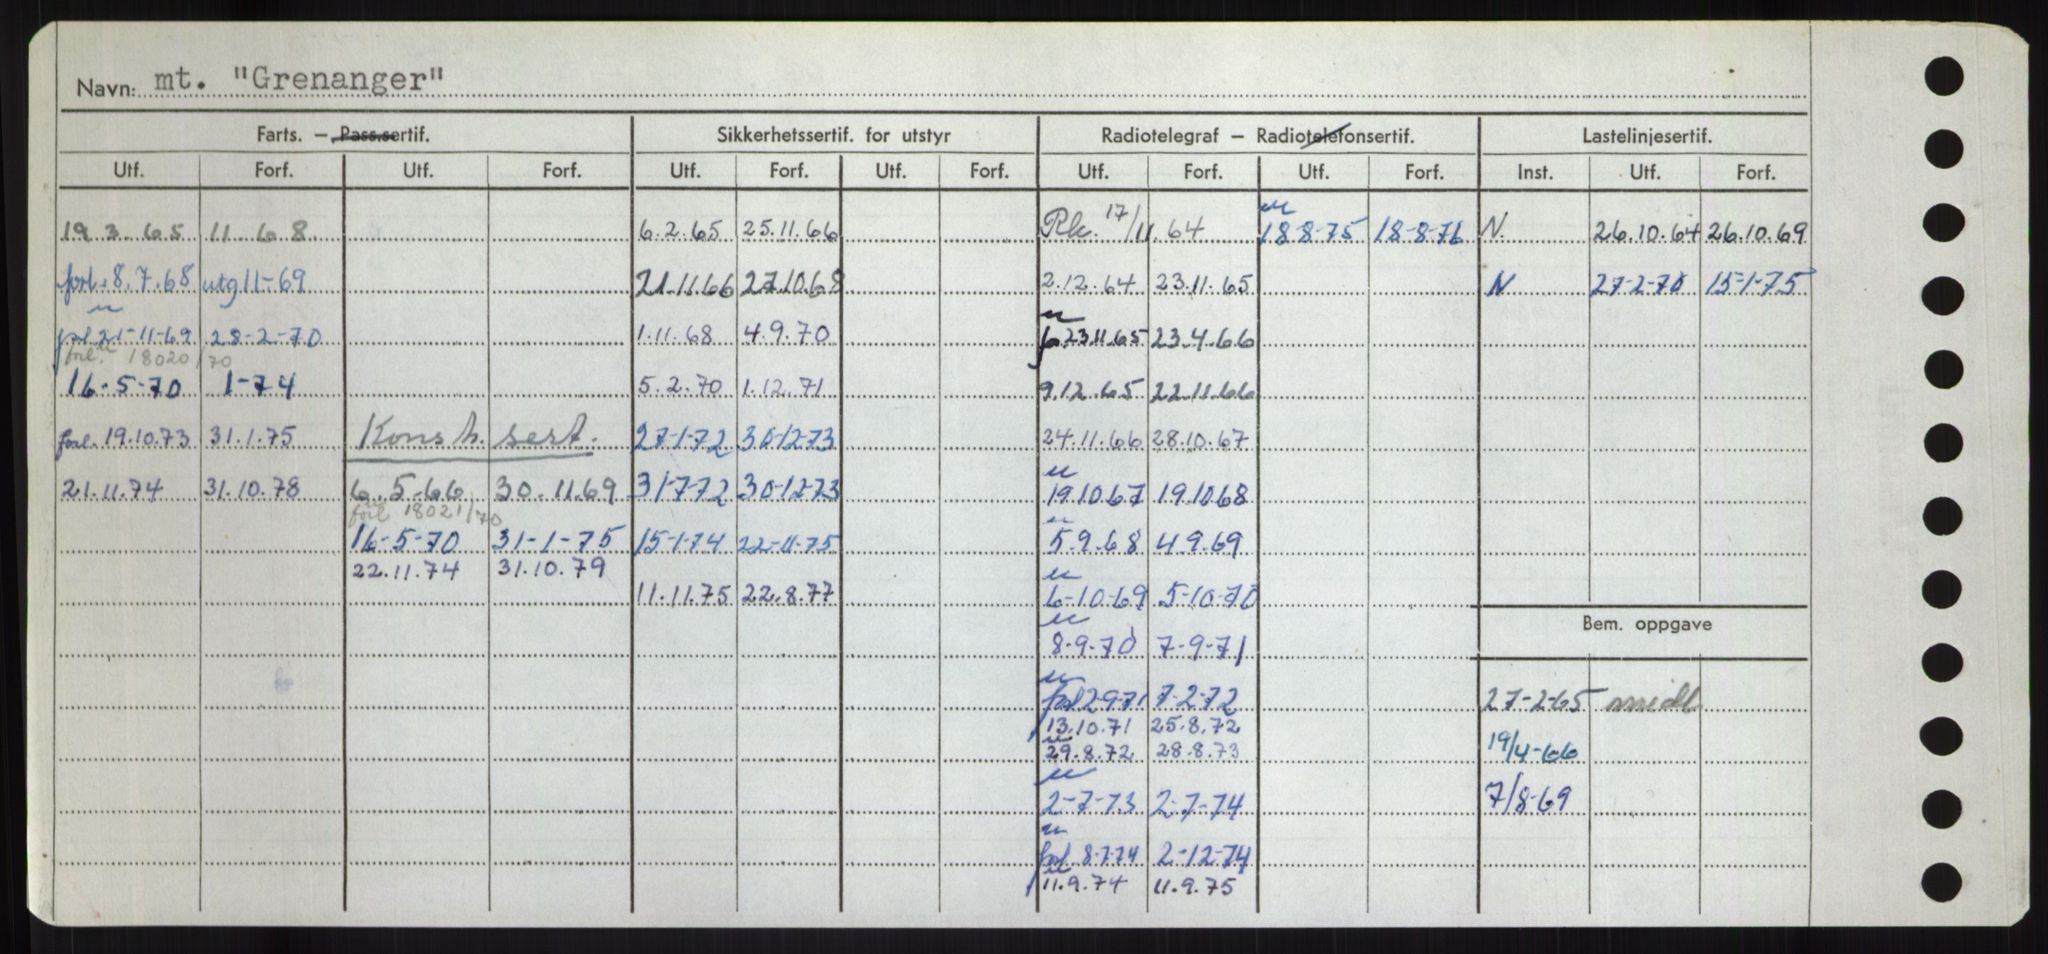 Navn: mt. "Grenanger"
Farts. — Pass.sertif. Sikkerhetssertif. for utstyr Radiotelegraf — Radiotelefonsertif. Lastelinjesertif.
Utf. Forf. Utf. Forf. Utf. Forf. Utf. Forf. Utf. Forf. Utf. Forf. Inst. Utf. Forf.
19 3. 65 11. 6 8. 6.2.65 25.11.66 Rk. 17/11.64 18-8-75 18-8-76 N. 26.10.64 26.10.69
forl. 8.7.68 utg 11-69 21.11.66 27.10.68 2.12.64 23.11.65 N 27-2-70 15-1-75
forl 21-11-69 28-2-70 1.11.68 4.9.70 f. 23.11.65 23.4.66
forl. 18020/70
16-5-70 1-74 5.2.70 1.12.71 9.12.65 22.11.66
forl. 19.10.73 31.1.75 Konstr. sert. 27-1-72 30-12-73 24.11.66 28.10.67
21.11.74 31.10.78 6.5.66 30.11.69 31-7-72 30-12-73 19.10.67 19.10.68
forl 18021/70
16-5-70 31-1-75 15-1-74 22-11-75 5.9.68 4.9.69
22.11.74 31.10.79
11.11.75 22.8.77 6-10-69 5-10-70
Bem. oppgave
8-9-70 7-9-71
forl 2-9-71 7-2-72 27-2-65 midl
13.10.71 25.8.72
29.8.72 28.8.73 19/4-66
2-7-73 2-7-74 7/8-69
forl 8-7-74 2-12-74
11.9.74 11.9.75